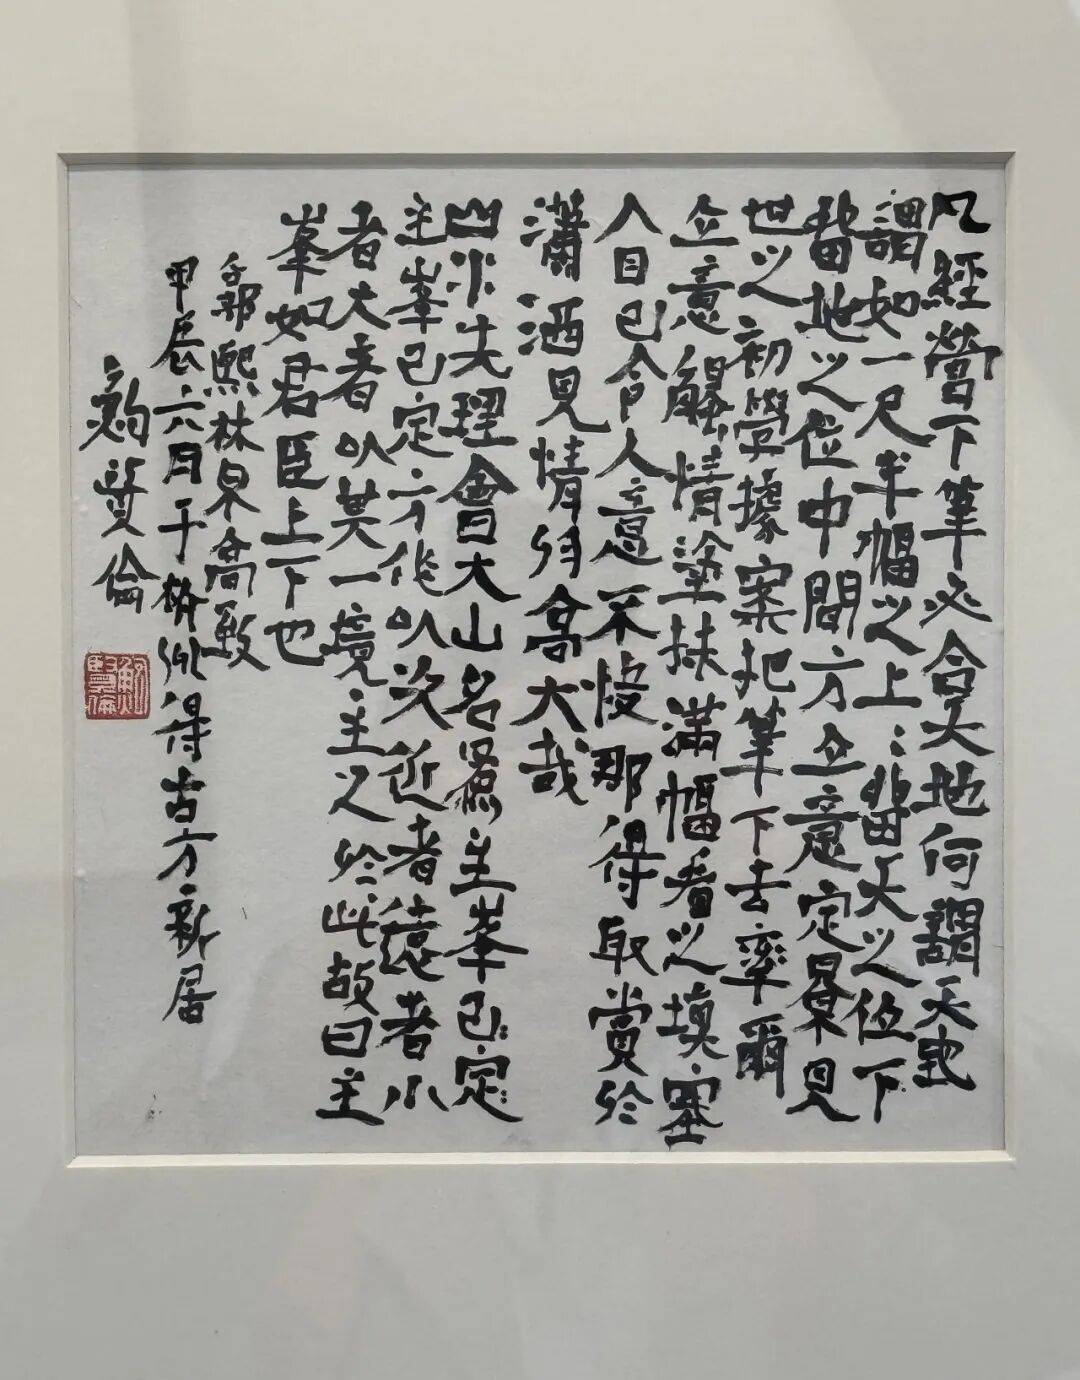 凡經營下筆必合天地何謂天地
謂如一尺半幅之上上留天之位下
留地之位中間方立意定景見
世之初學據案把筆下去率爾
立意觸情塗抹滿幅看之填塞
人目已令人意不快那得取賞於
瀟洒見情於高大哉
山水先理會大山名為主峯主峯已定
方作以次近者遠者小
者大者以其一境主之於此故曰主
峯如君臣上下也
郭熙林泉高致
甲辰六月于杭州得古方新居
鞠質倫